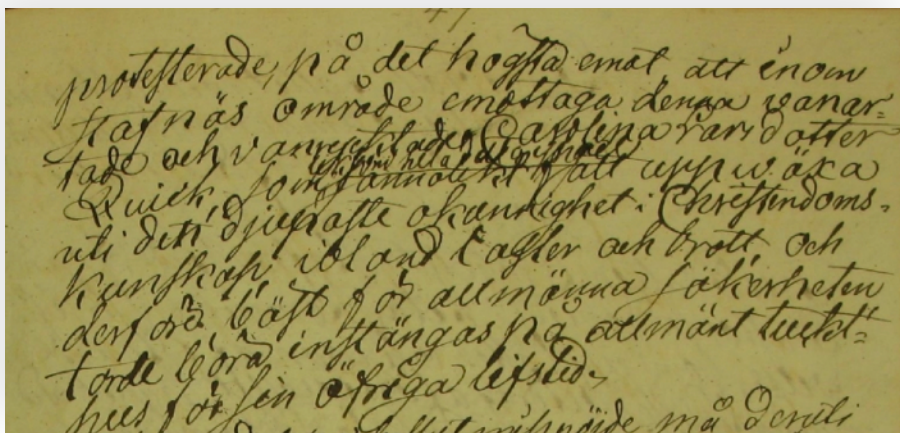 47
protesterade, på det högsta emot att inom
Stafnäs område emottaga denna vanar-
tade och vanryktade Carolina Carlsdotter
Quick, som fått uppwäxa
uti den djupaste okunnighet i Christendoms-
kunskap, ibland laster och brott och
derföre bäst för allmänna säkerheten
torde böra instängas på allmänt tukt-
hus för sin öfriga lifstid.
må deruti